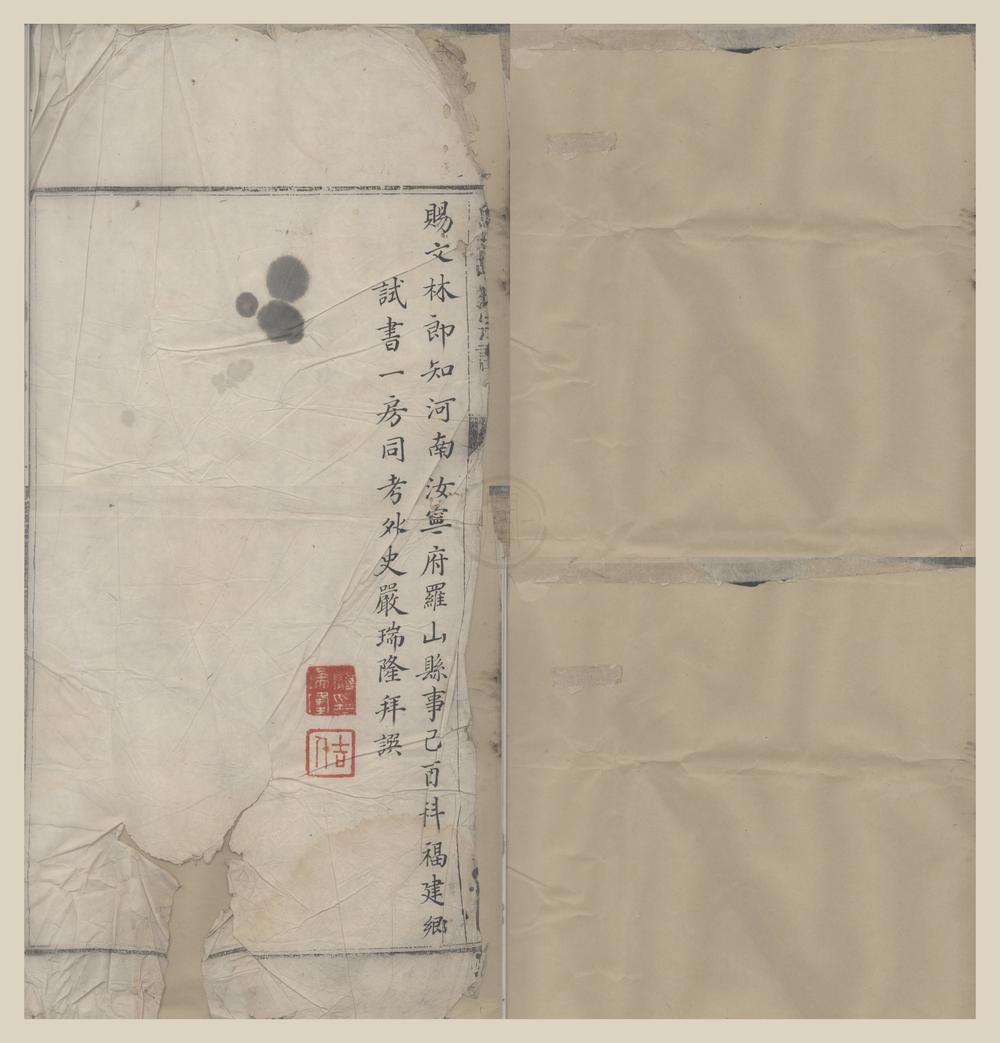 賜文林郎知河南汝寧府羅山縣事己酉科福建鄉
試書一房同考外史嚴瑞隆拜譔